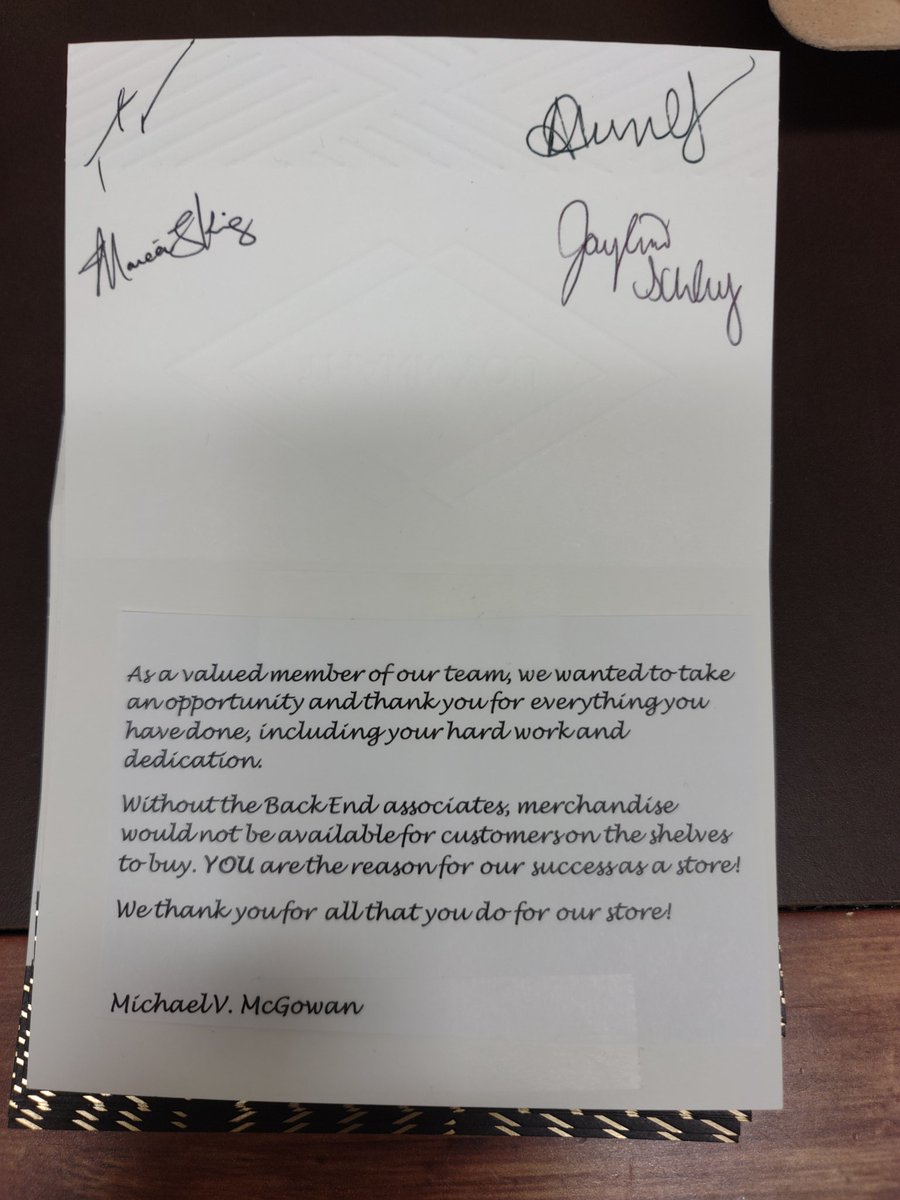 As a valued member of our team, we wanted to take
an opportunity and thank you for everything you
have done, including your hard work and
dedication.
Without the Back End associates, merchandise
would not be available for customers on the shelves
to buy. YOU are the reason for our success as a store!
We thank you for all that you do for our store!
Michael V. McGowan